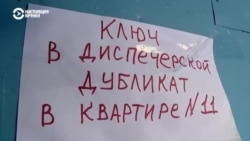 НАСТОЯЩЕЕ
ВРЕМЯ
КЛЮЧ
В ДИСПЕЧЕРСКОЙ
ДУБЛИКАТ
В КВАРТИРЕ №11